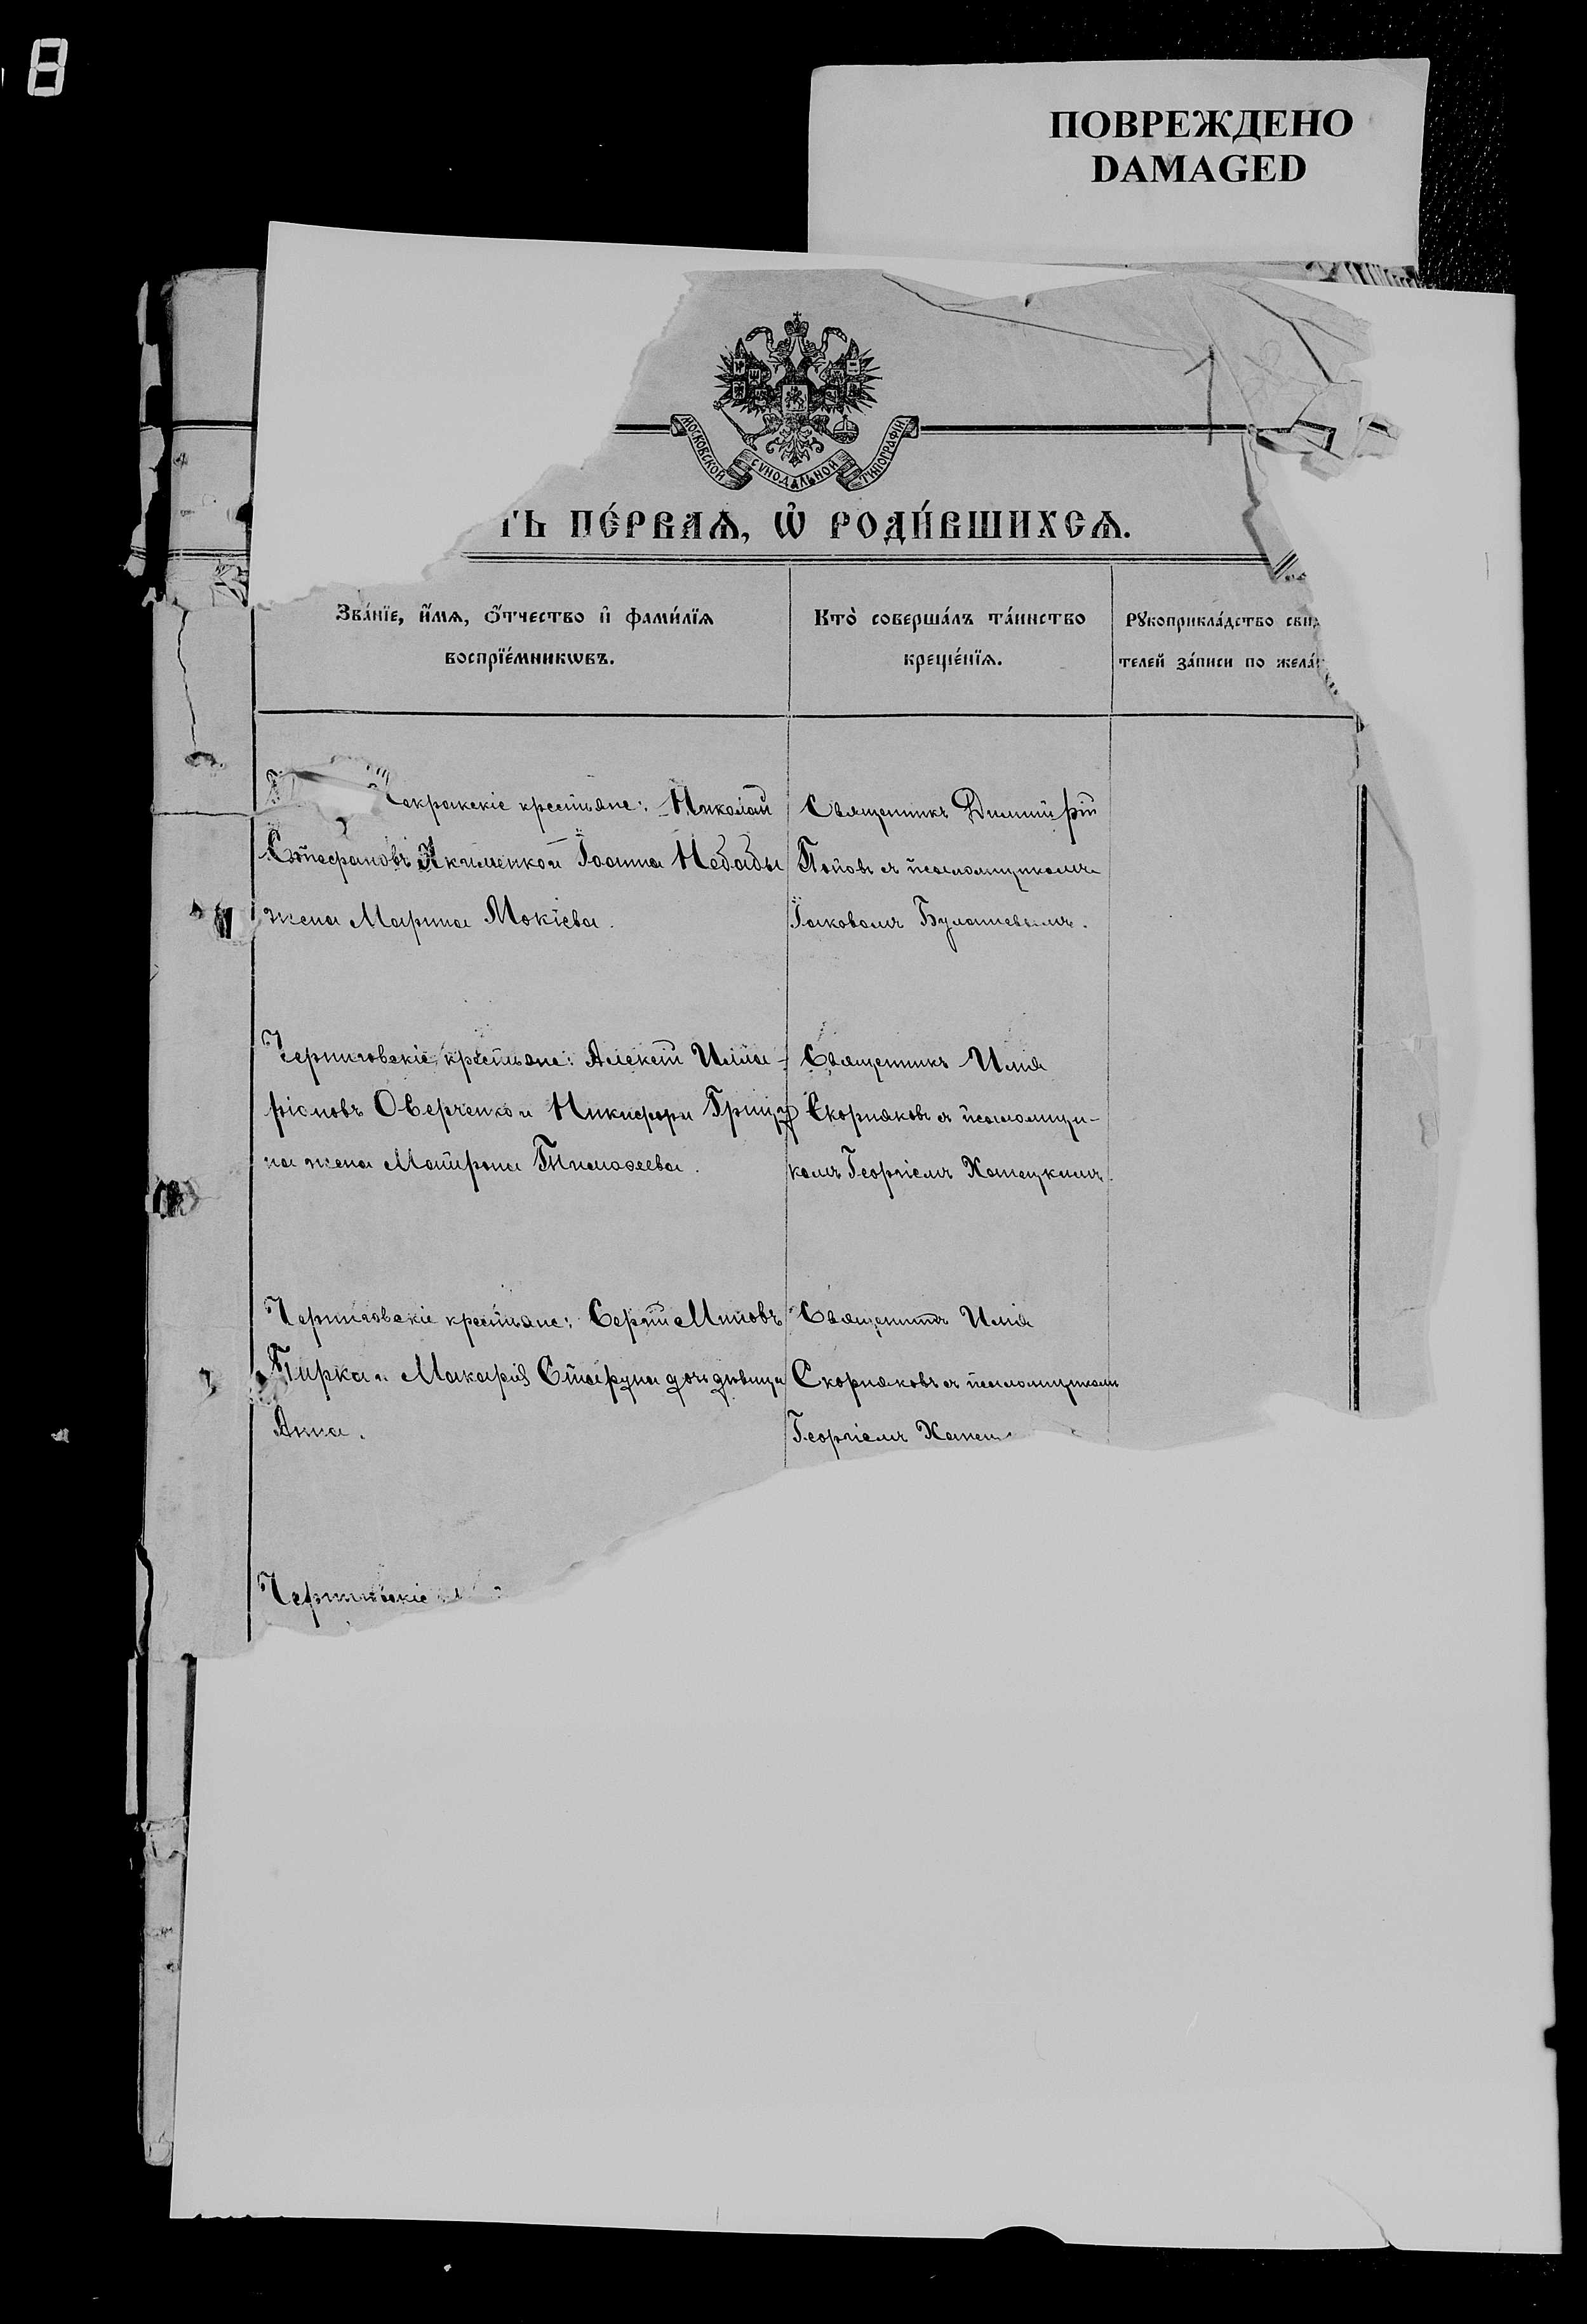 8
ПОВРЕЖДЕНО
DAMAGED
МОСКОВСКОЙ СѴНОДАЛЬНОЙ ТИПОГРАФІИ
ТЬ ПЕ́РВАѦ, Ѡ҆ РОДИ́ВШИХСѦ.
Зва́нїе, и҆́мѧ, ѻ҆́тчество и҆ фами́лїѧ
воспрїе́мникѡвъ.
Кто̀ соверша́лъ та́инство
креще́нїѧ.
Рꙋкоприкла́дство свид
телей за́писи по жела́
крестьяне: Николай
Стефановъ Якименко и Іоанна Небабы
жена Марина Мокіева.
Священникъ Димитрій
Поповъ съ псаломщикомъ
Іаковомъ Булашевымъ.
Черниговскіе крестьяне: Алексій Илла-
ріоновъ Оверченко и Никифора Грицу
на жена Матрона Тимоѳеева.
Священникъ Илія
Скорняковъ съ псаломщи-
комъ Георгіемъ Хатецкимъ.
Черниговскіе крестьяне: Сергій Миновъ
Бирка и Макарія Старуна дочь дѣвица
Анна.
Священникъ Илія
Скорняковъ съ псаломщикомъ
Георгіемъ
Черниговскіе